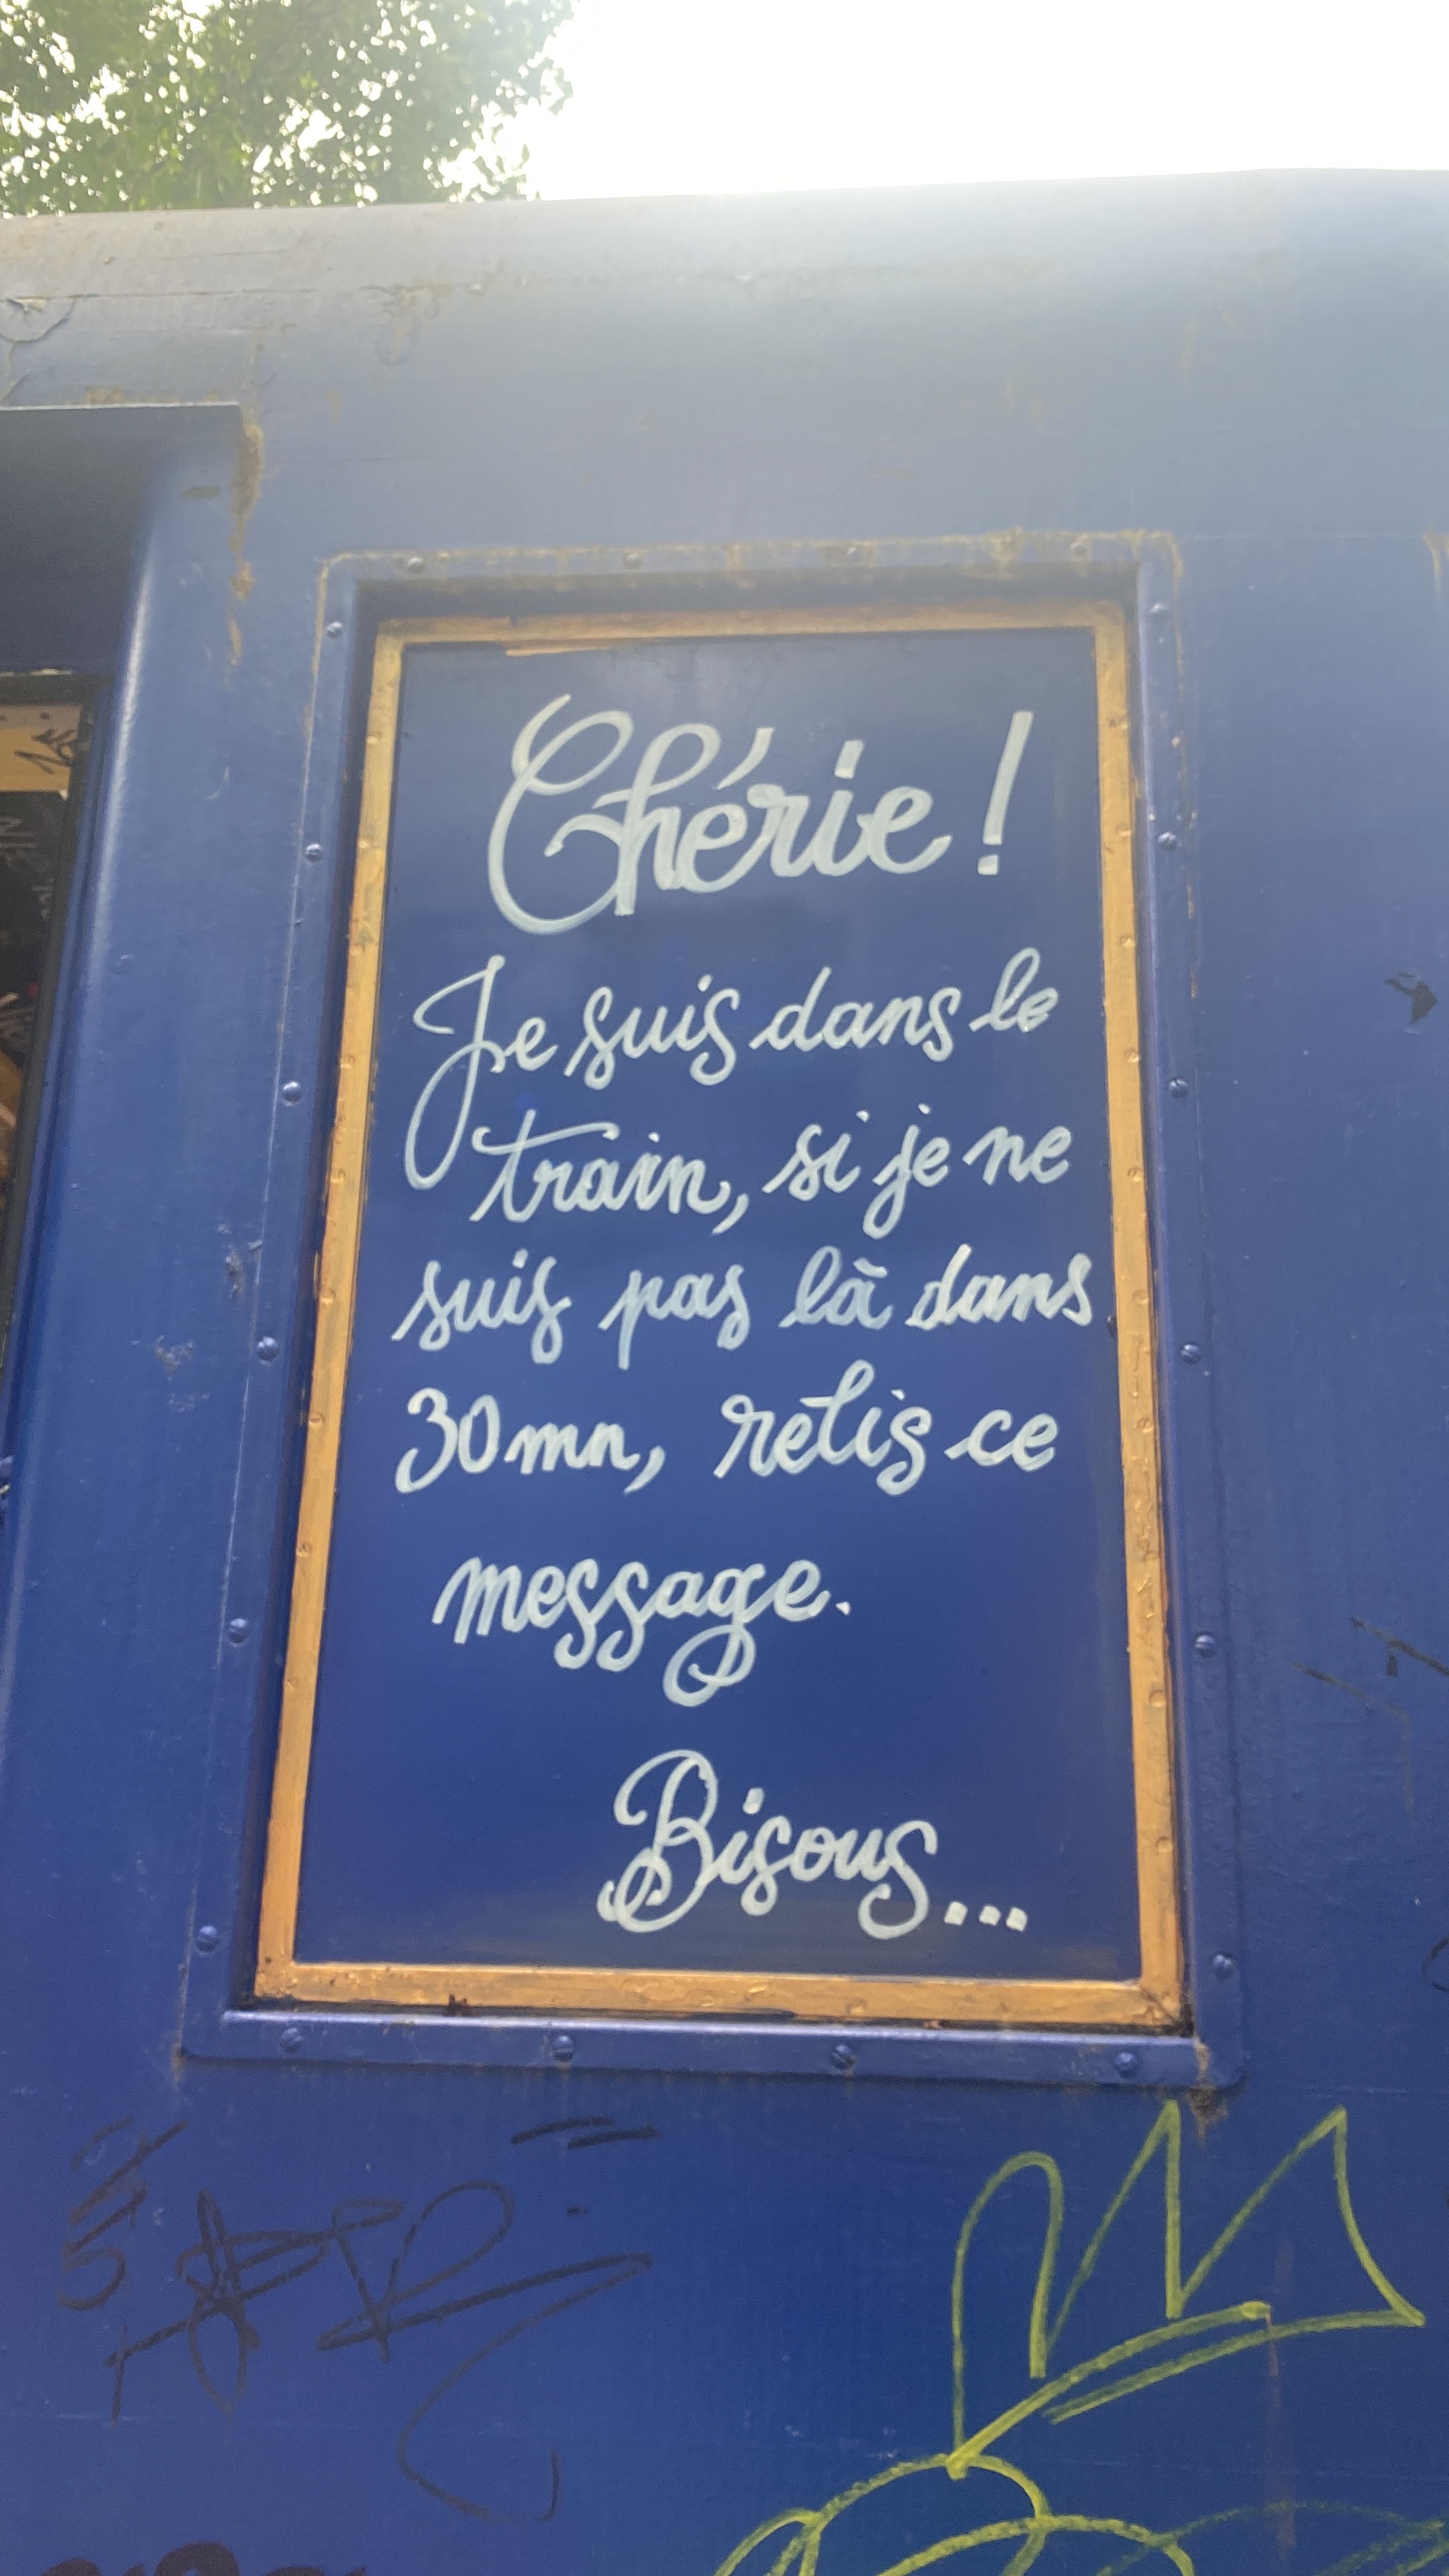 Chérie !
Je suis dans le
train, si je ne
suis pas là dans
30mn, relis ce
message.
Bisous...